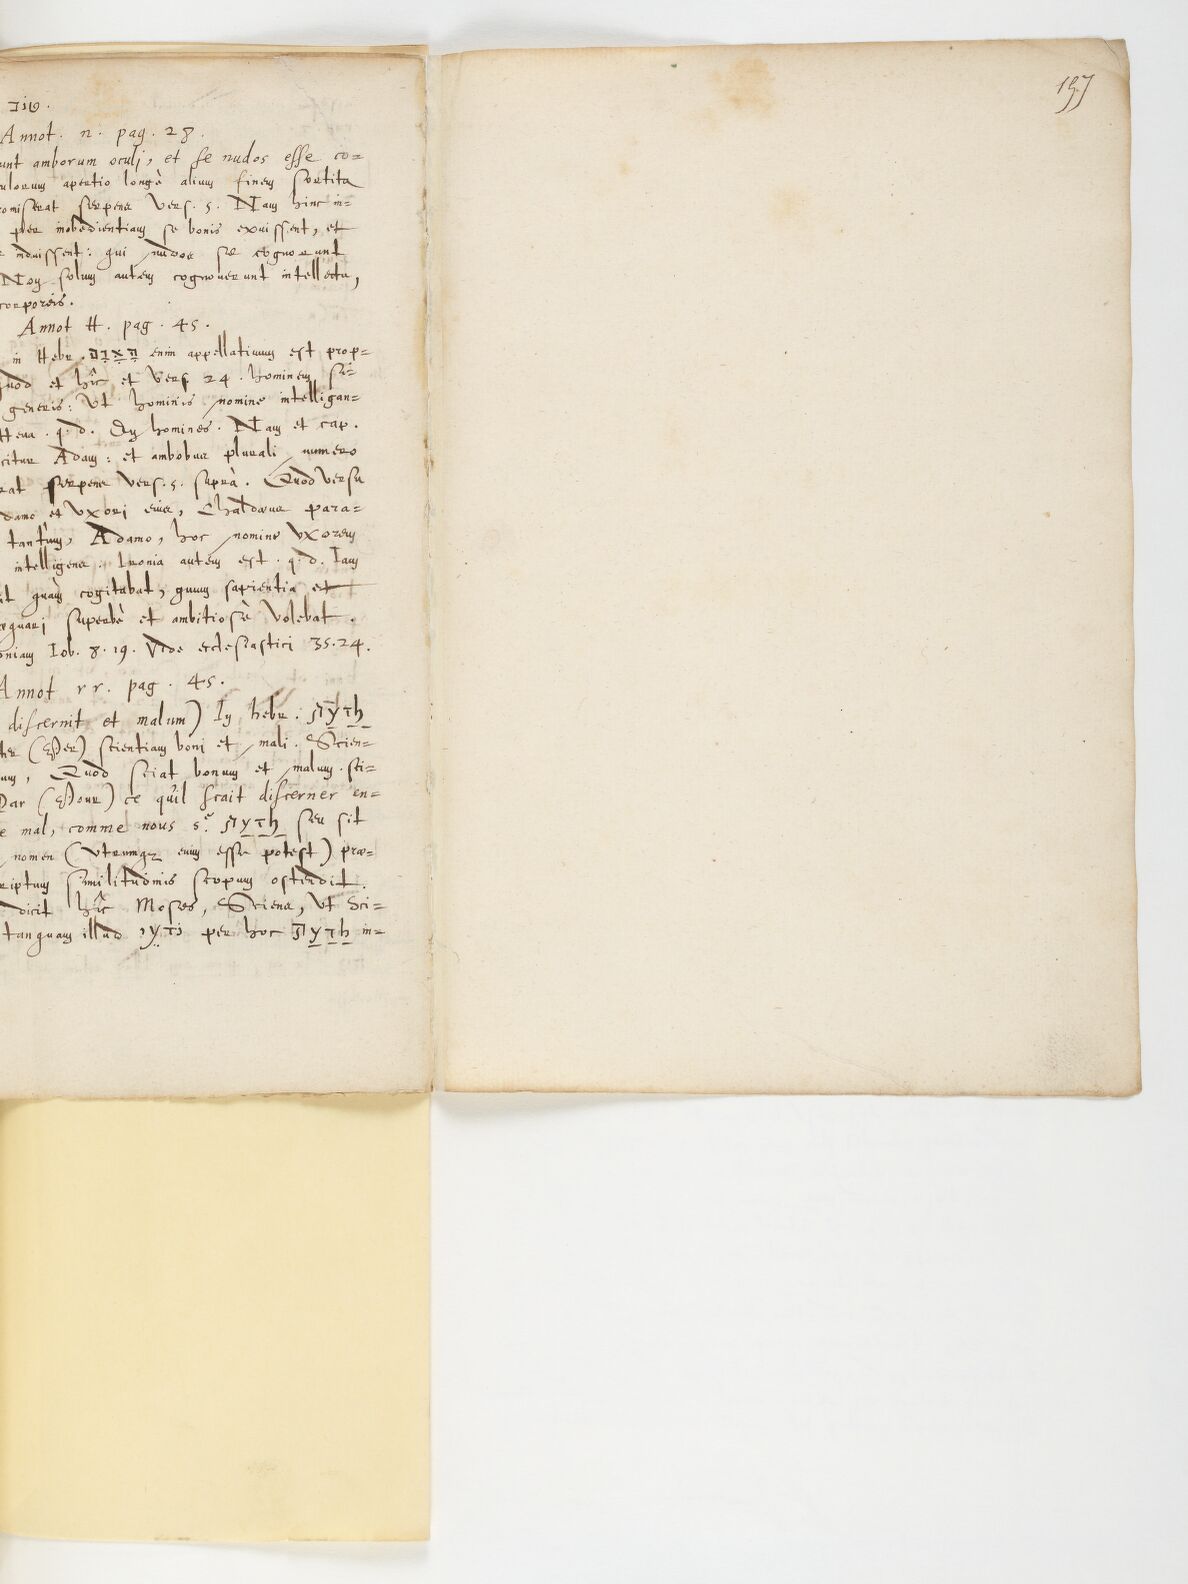 טוב.
Annot. n. pag. 28.
unt amborum oculi, et se nudos esse co=
ulorum apertio longè alium finem sortita
omiserat serpens vers. 5. Nam hinc in=
per inobedientiam se bonis exuissent, et
induissent: qui nudos se cognorunt
Non solum autem cognoverunt intellectu,
corporeis.
Annot tt. pag. 45.
in Hebr. הָאָדָם enim appellativum est prop=
quod et hîc et vers 24. hominem si=
generis: Ut hominis nomine intelligan=
Heua. q. d. En homines. Nam et cap.
citur Adam: et ambobus plurali numero
rat serpens vers. 5. suprà. Quod versu
damo et uxori eius, Chaldæus para=
tantùm, Adamo, hoc nomine uxorem
intelligens. Ironia autem est. q. d. Iam
it quàm cogitabat, quum sapientia et
æquari superbè et ambitiosè volebat.
oniam Iob. 8. 19. Vide ecclesiastici 35. 24.
Annot rr. pag. 45.
discernit et malum) In hebr. לָדַעַת
ter (Per) scientiam boni et mali. Scien=
um, Quod sciat bonum et malum. sci=
Par (Pour) ce qu'il scait discerner en=
e mal, comme nous s. לָדַעַת seu sit
nomen (utrumque enim esse potest) præ=
riptum similitudinis scopum ostendit.
dicit hîc Moses, Sciens, ut Sci=
tanquam illud יודעי per hoc לָדַעַת in=
157